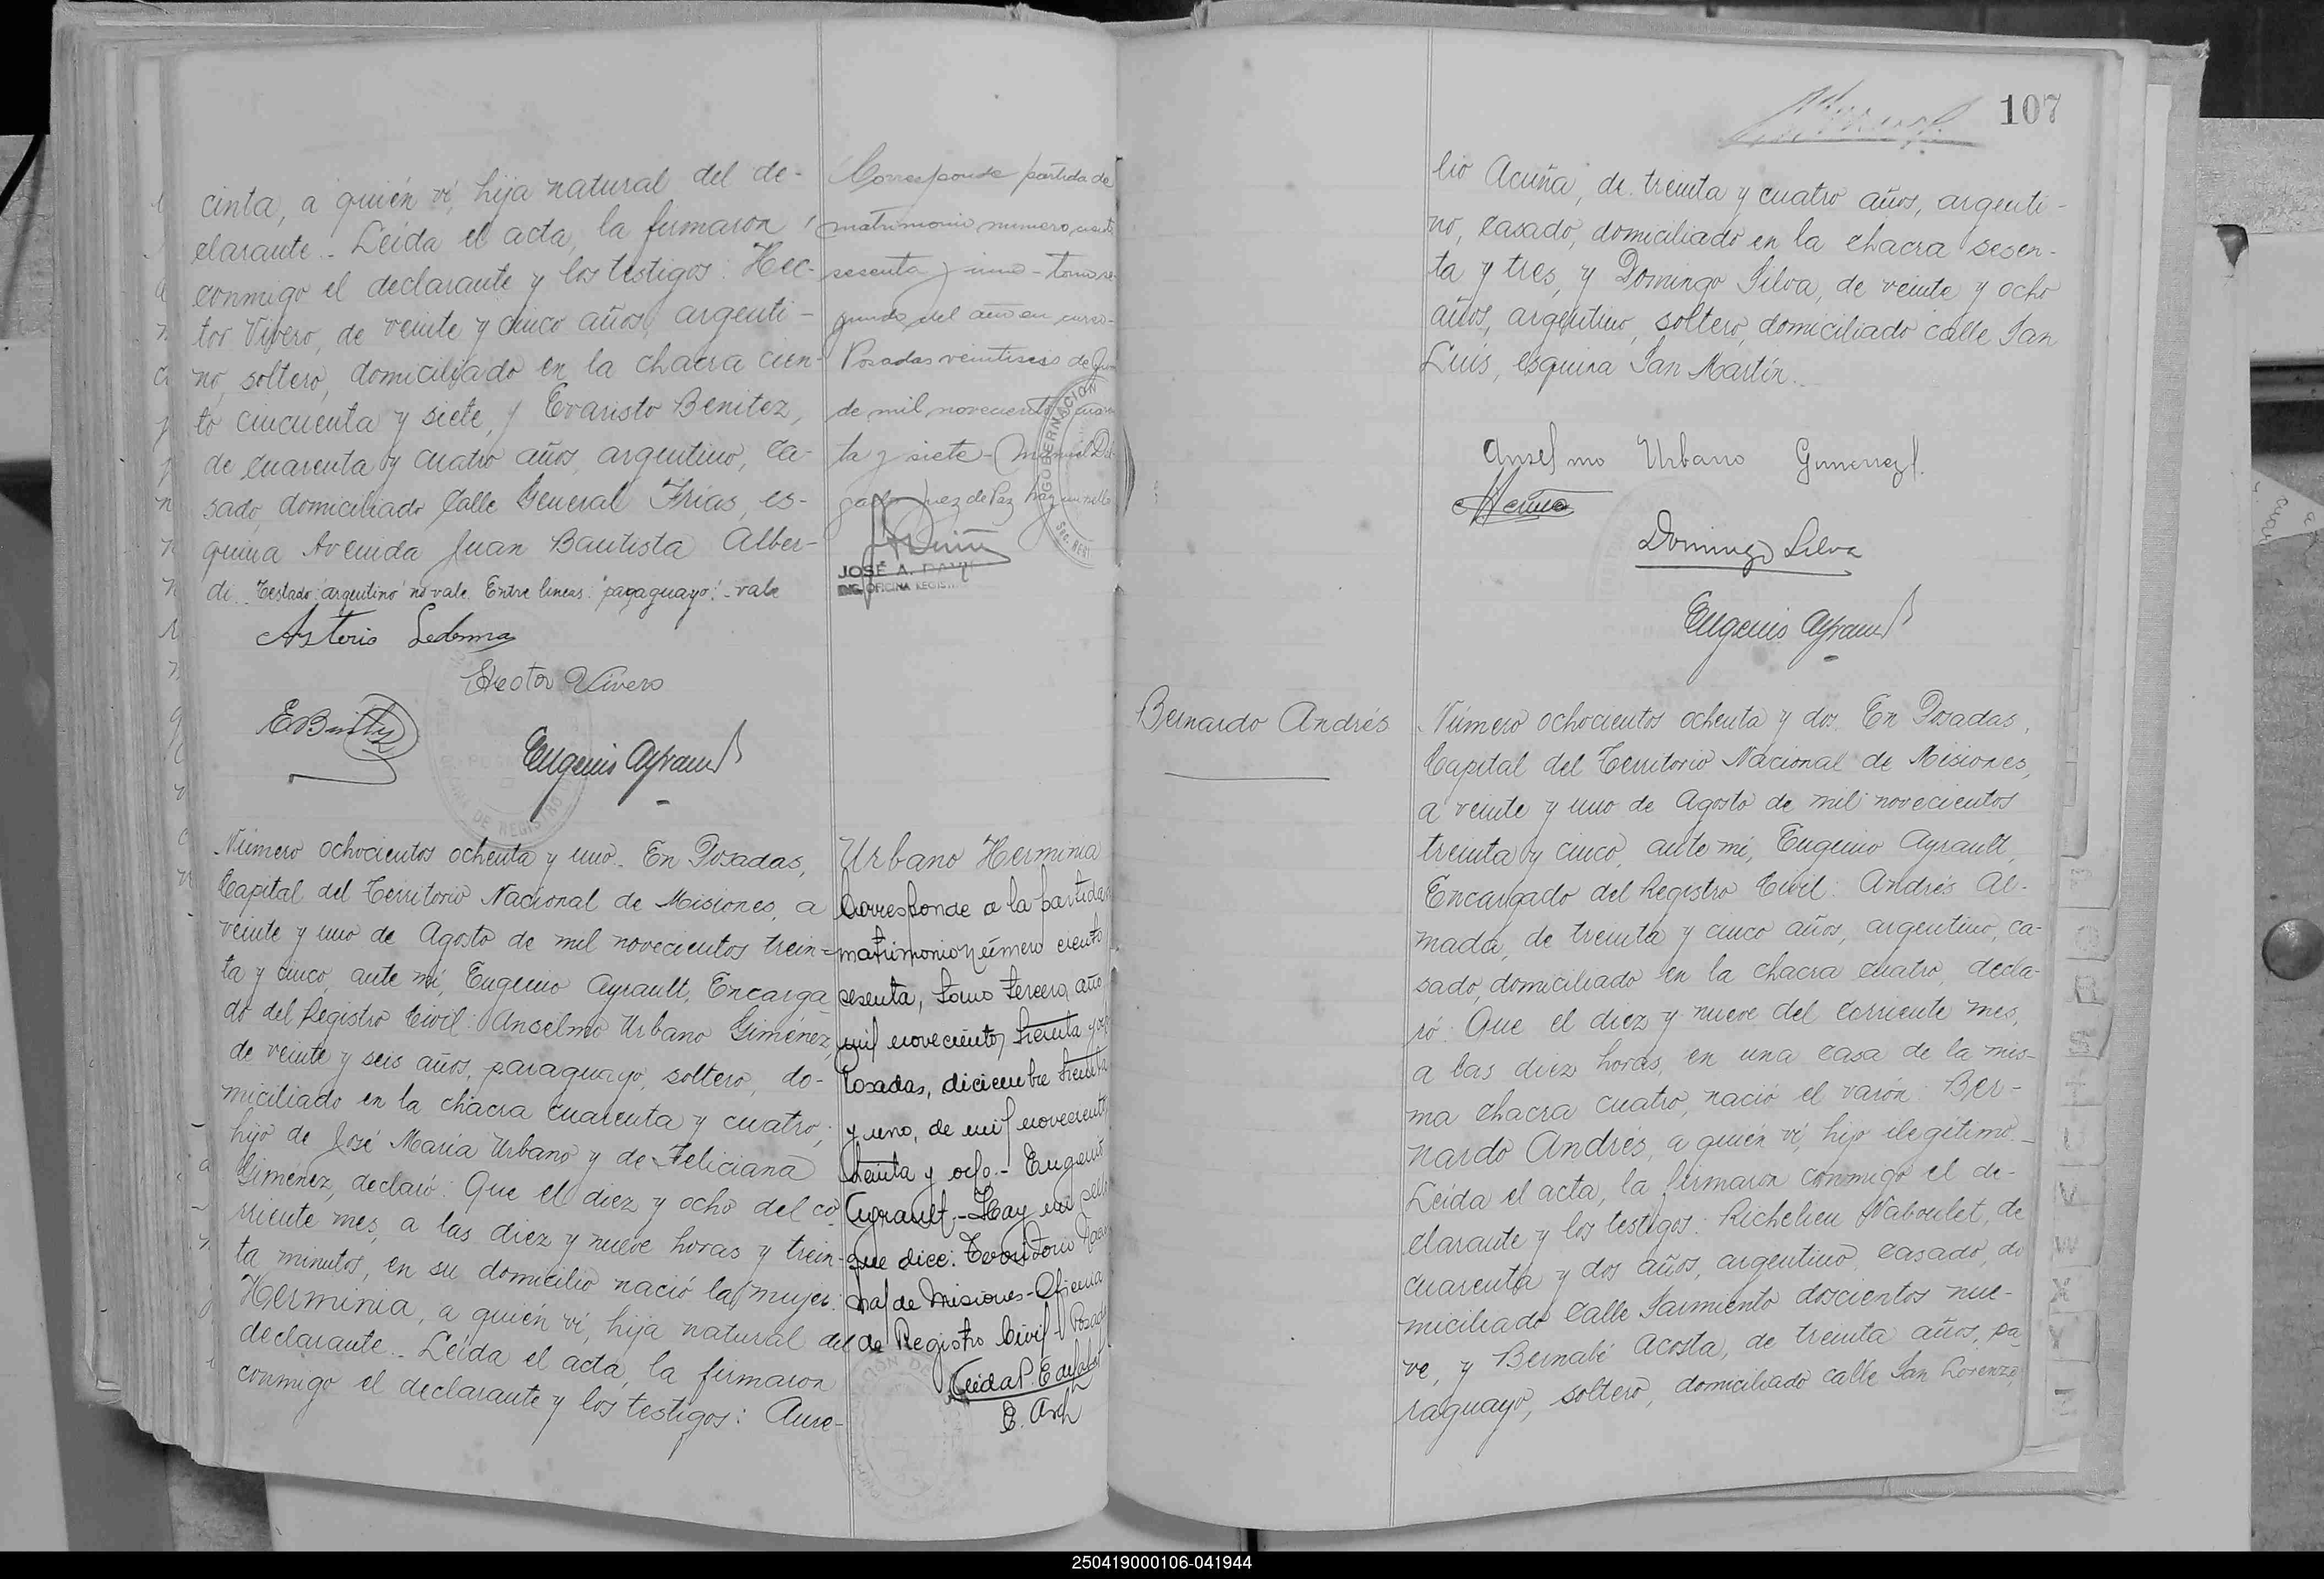 cinta, a quién ví, hija natural del de-
clarante.- Leída el acta, la firmaron
conmigo el declarante y los testigos: Hec-
tor Vivero, de veinte y cinco años, argenti-
no, soltero, domiciliado en la chacra cien-
to cincuenta y siete, y Evaristo Benitez,
de cuarenta y cuatro años, argentino, ca-
sado, domiciliado Calle General Frías, es-
quina Avenida Juan Bautista Alber-
di.- Testado: "argentino" no vale. Entre lineas: "paraguayo".- vale
Asterio Ledesma
Hector Vivero
Eugenio Ayrault
Corresponde partida de
matrimonio numero ciento
sesenta y uno - tomo se-
gundo del año en curso-
Posadas veintiseis de
de mil novecientos
ta y siete - Manuel Del-
gado Juez de Paz hay un sello
GOBERNACION
JOSÉ A.
OFICINA REGIST
Número ochocientos ochenta y uno.- En Posadas,
Capital del Territorio Nacional de Misiones, a
veinte y uno de Agosto de mil novecientos trein-
ta y cinco, ante mí, Eugenio Ayrault, Encarga-
do del Registro Civil: Anselmo Urbano Giménez,
de veinte y seis años, paraguayo, soltero, do-
miciliado en la chacra cuarenta y cuatro,
hijo de José María Urbano y de Feliciana
Giménez, declaró: Que el diez y ocho del co-
rriente mes, a las diez y nueve horas y trein-
ta minutos, en su domicilio nació la mujer:
Herminia, a quién ví, hija natural del
declarante.- Leída el acta, la firmaron
conmigo el declarante y los testigos: Aure-
Urbano Herminia
Corresponde a la partida
matrimonio número ciento
sesenta, tomo tercero, año
mil novecientos treinta y
Posadas, diciembre treinta
y uno, de mil novecientos
treinta y ocho.- Eugenio
Ayrault.- Hay un sello
que dice: Territorio Nacio
nal de Misiones - Oficina
de Registro Civil - Posadas
107
lio Acuña, de treinta y cuatro años, argenti-
no, casado, domiciliado en la chacra sesen-
ta y tres, y Domingo Silva, de veinte y ocho
años, argentino, soltero, domiciliado calle San
Luis, esquina San Martín.
Anselmo Urbano
Acuña
Domingo Silva
Eugenio Ayrault
Bernardo Andrés
Número ochocientos ochenta y dos. En Posadas,
Capital del Territorio Nacional de Misiones,
a veinte y uno de Agosto de mil novecientos
treinta y cinco, ante mí, Eugenio Ayrault,
Encargado del Registro Civil: Andrés Al-
mada, de treinta y cinco años, argentino, ca-
sado, domiciliado en la chacra cuatro, decla-
ró: Que el diez y nueve del corriente mes,
a las diez horas, en una casa de la mis-
ma chacra cuatro, nació el varón: Ber-
nardo Andrés, a quién ví, hijo ilegítimo.-
Leída el acta, la firmaron conmigo el de-
clarante y los testigos: Richelieu Naboulet, de
cuarenta y dos años, argentino, casado, do
miciliado Calle Sarmiento doscientos nue-
ve, y Bernabé Acosta, de treinta años, pa-
raguayo, soltero, domiciliado calle San Lorenzo,
250419000106-041944